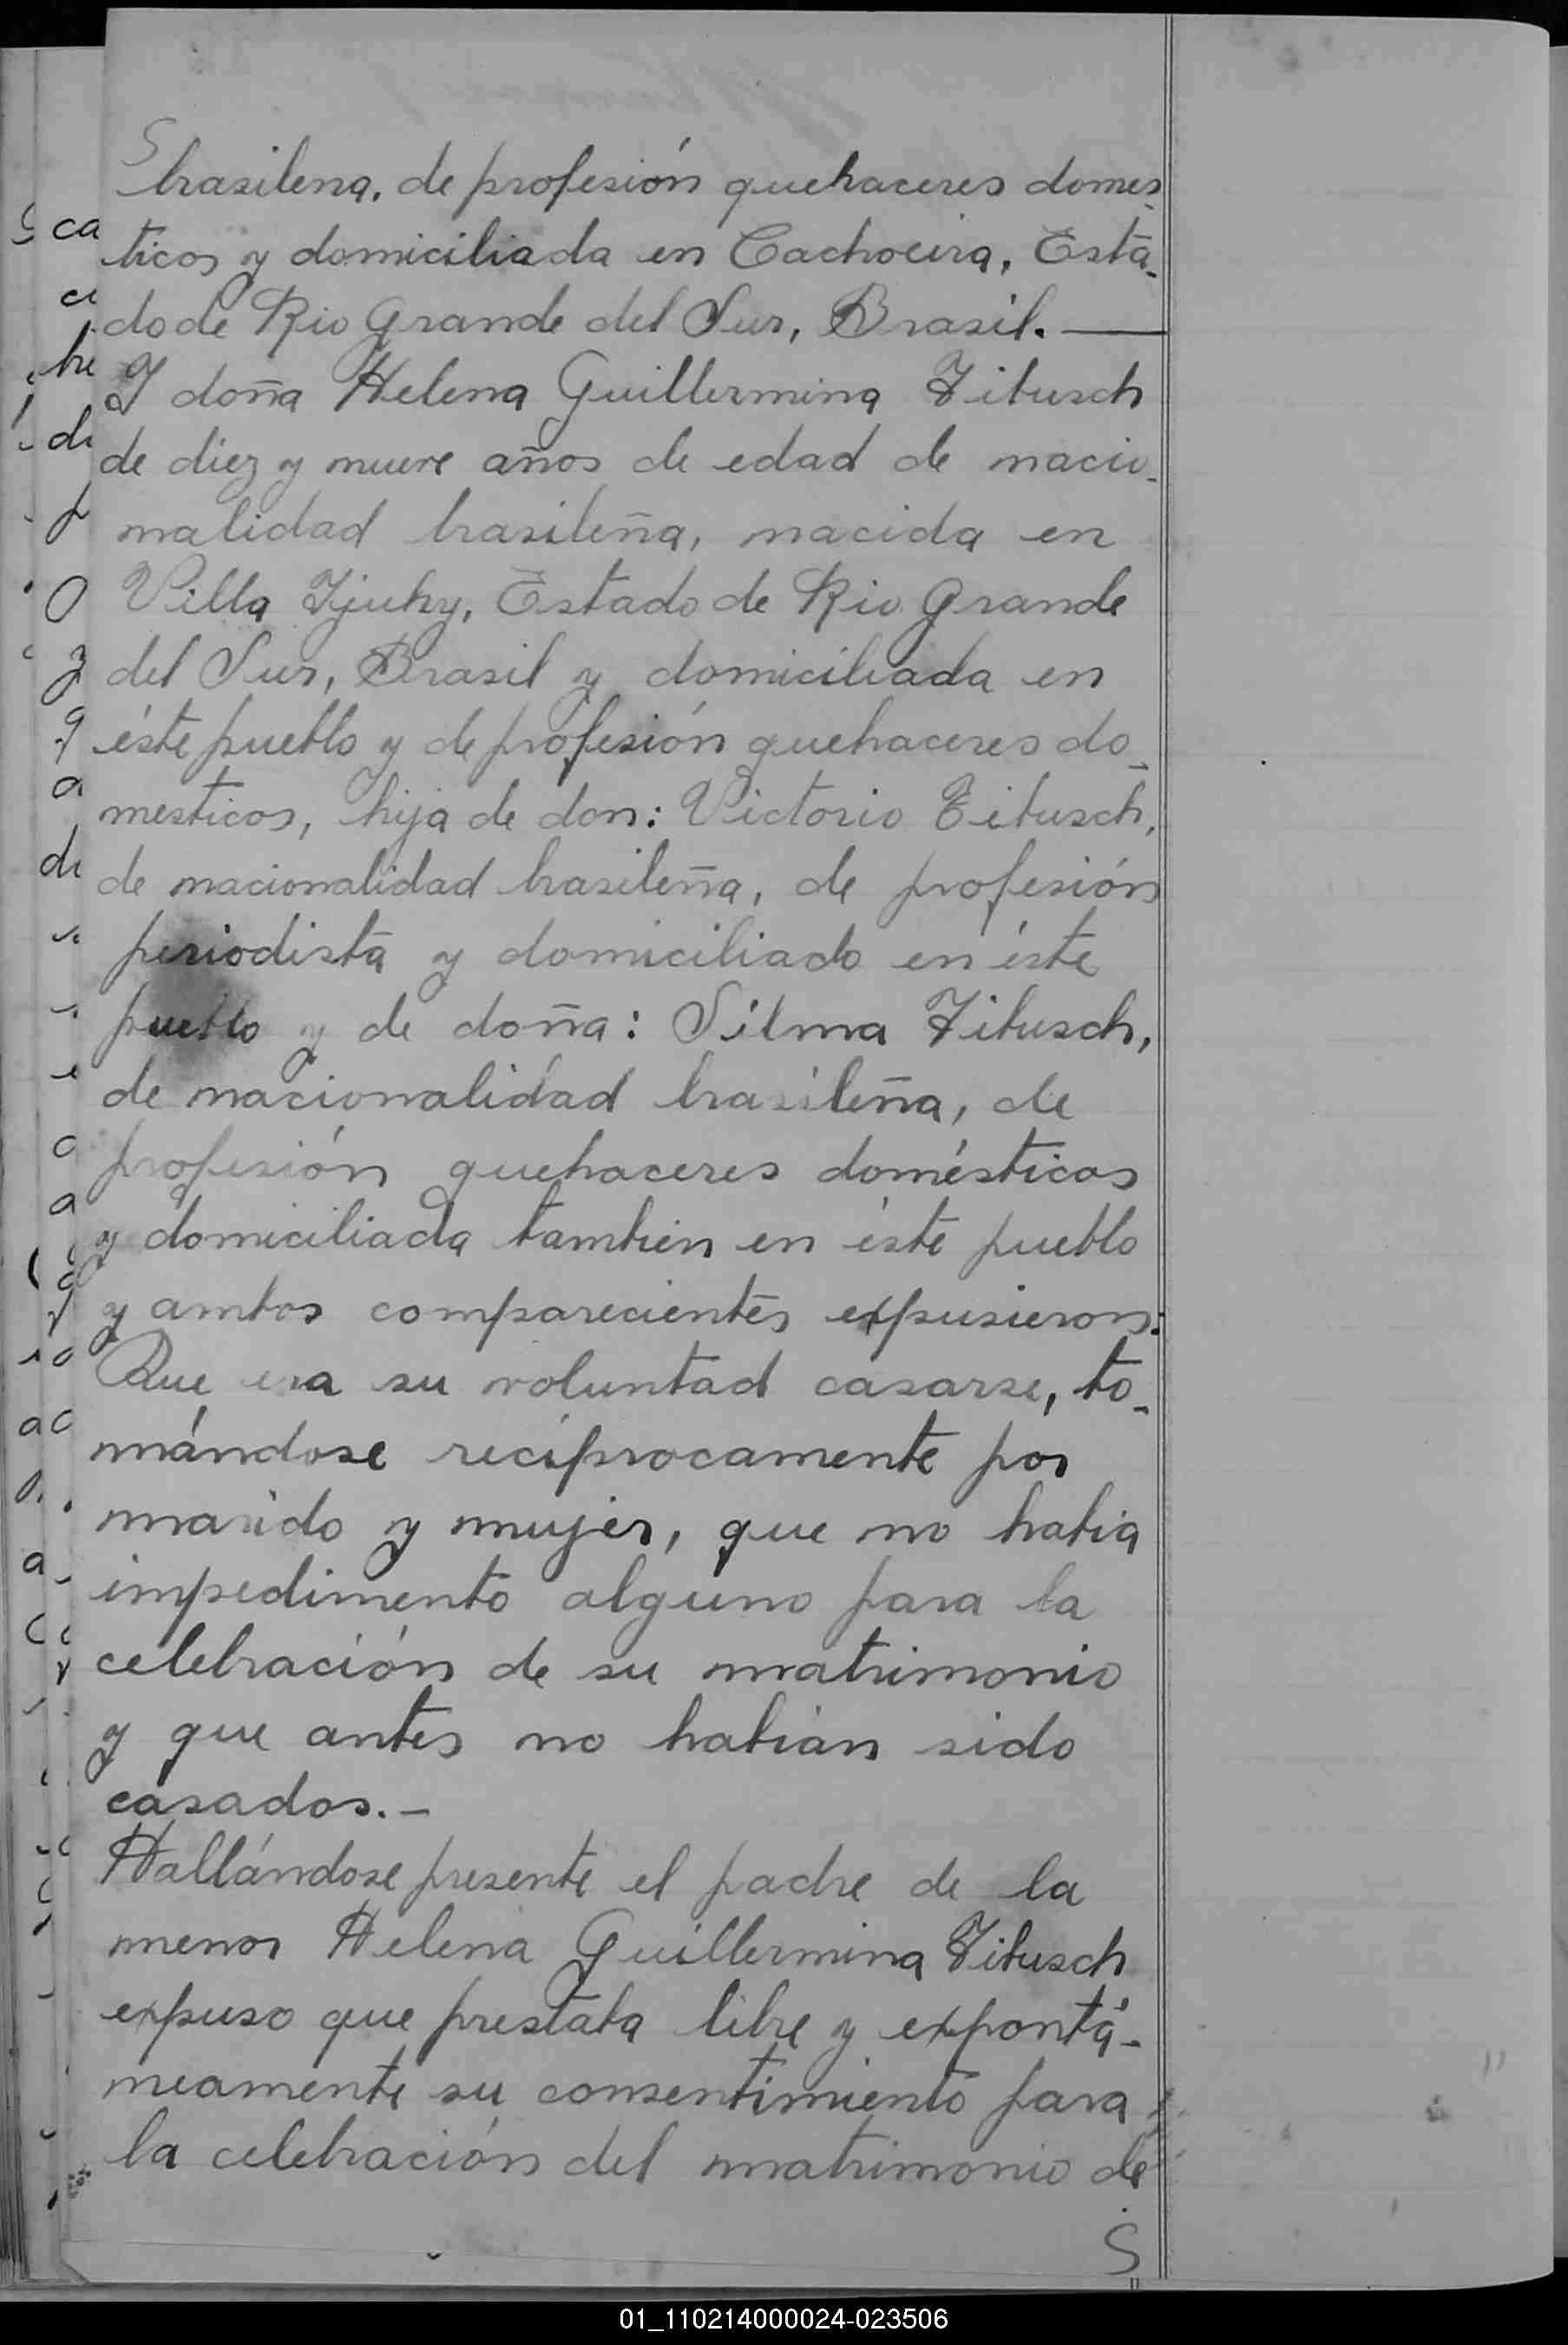 S
brasilena, de profesión quehaceres domes-
ticos y domiciliada en Cachoeira, Esta-
do de Rio Grande del Sur, Brasil. —
Y doña Helena Guillermina Zitusch
de diez y nueve años de edad de nacio-
nalidad brasileña, nacida en
Villa Yjuhy, Estado de Rio Grande
del Sur, Brasil y domiciliada en
éste pueblo y de profesión quehaceres do-
mesticos, hija de don: Victorio Zitusch,
de nacionalidad brasileña, de profesión
periodista y domiciliado en éste
pueblo y de doña: Silma Zitusch,
de nacionalidad brasileña, de
profesión quehaceres domésticos
y domiciliada tambien en éste pueblo
y ambos comparecientes expusieron:
Que era su voluntad casarse, to-
mándose recíprocamente por
marido y mujer, que no habia
impedimento alguno para la
celebración de su matrimonio
y que antes no habian sido
casados.-
Hallándose presente el padre de la
menor Helena Guillermina Zitusch
expuso que prestaba libre y expontá-
neamente su consentimiento para
la celebración del matrimonio de
S
01_110214000024-023506